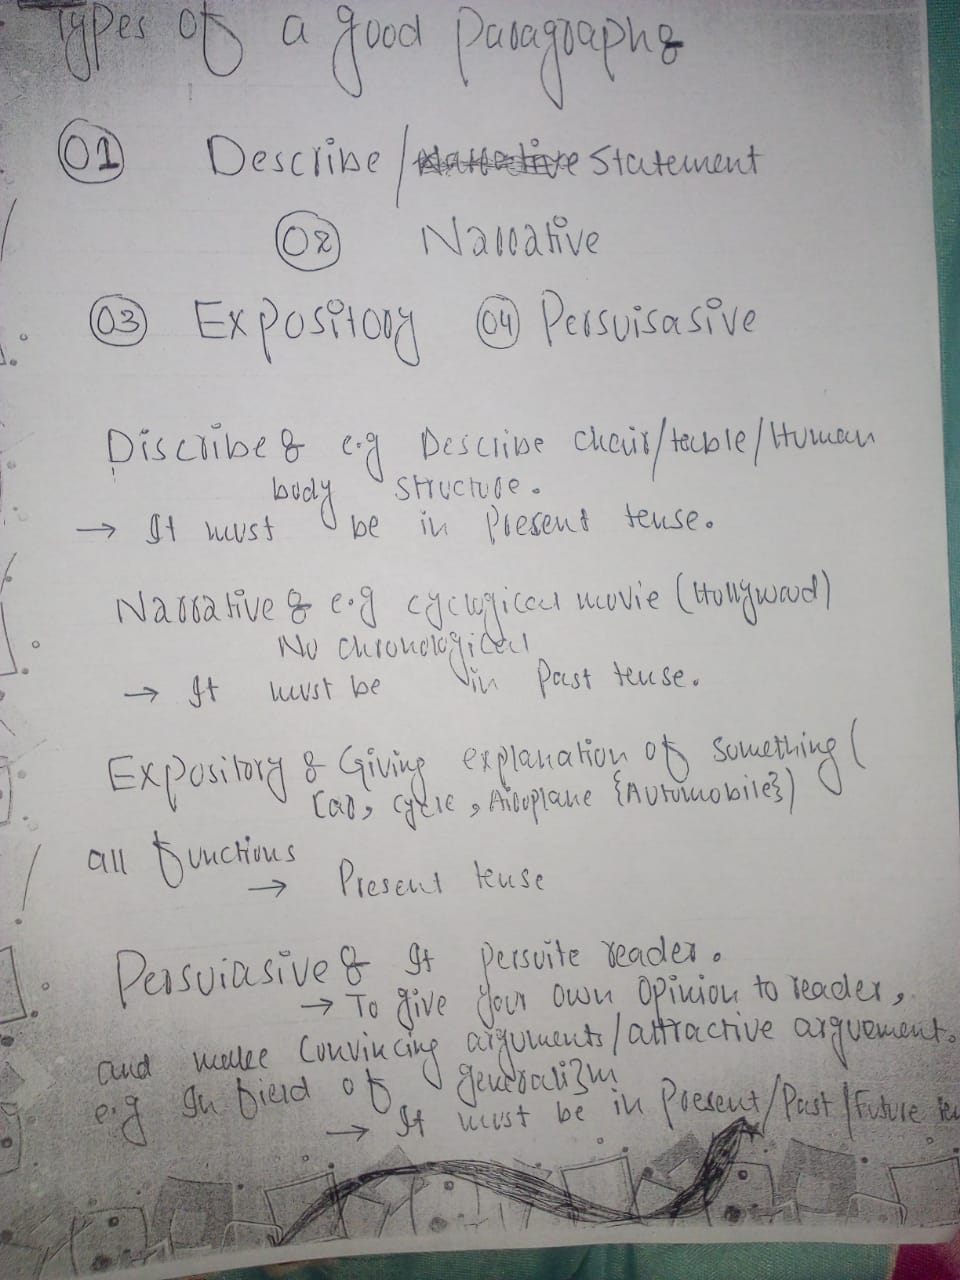 Types of a good paragraph:
01 Describe / Narrative Statement
02 Narrative
03 Expository 04 Persuisasive
Discribe: e.g Describe chair/table/Human
body structure.
→ It must be in Present tense.
Narrative: e.g cyclogical movie (Hollywood)
No chronological
→ It must be in Past tense.
Expository: Giving explanation of something (
Car, cycle, Airoplane {Automobile})
all functions
→ Present tense
Persuiasive: It persuite reader.
→ To give your own opinion to reader,
and make convincing arguments/attractive arguement.
e.g In field of generalizm
→ It must be in Present/Past/Future ten